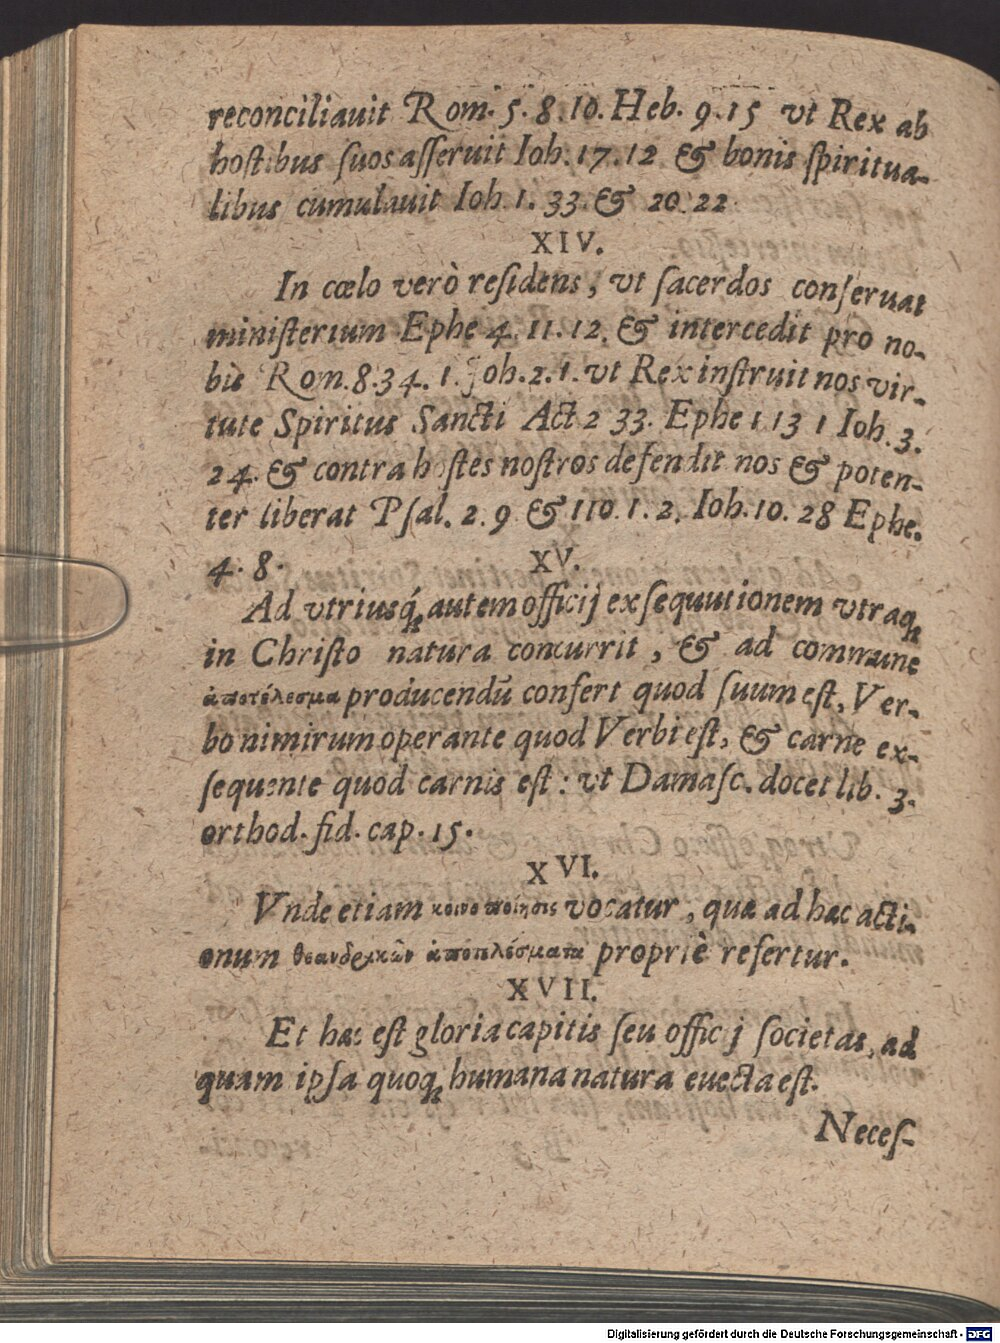 reconciliauit Rom. 5. 8. 10. Heb. 9. 15 vt Rex ab
hostibus suos asseruit Ioh. 17. 12 & bonis spiritua-
libus cumulauit Ioh 1. 33. & 20. 22
XIV.
In cœlo verò residens, vt sacerdos conseruat
ministerium Ephe 4. 11. 12. & intercedit pro no-
bis Rom. 8. 34. 1. Joh. 2. 1. vt Rex instruit nos vir-
tute Spiritus Sancti Act 2 33. Ephe 1 13 1 Ioh. 3.
24. & contra hostes nostros defendit nos & poten-
ter liberat Psal. 2. 9 & 110. 1. 2. Ioh. 10. 28 Ephe.
4. 8.
XV.
Ad vtriusq́; autem officij exsequutionem vtraq;
in Christo natura concurrit, & ad commune
ἀποτέλεσμα producendū confert quod suum est, Ver-
bo nimirum operante quod Verbi est, & carne ex-
sequente quod carnis est: vt Damasc. docet lib. 3.
orthod. fid. cap. 15.
XVI.
Vnde etiam κοινοποίησις vocatur, quæ ad hæc acti-
onum θεανδρικῶν ἀποτελέσματα propriè refertur.
XVII.
Et hæc est gloria capitis seu offic j societas, ad
quam ipsa quoq; humana natura euecta est.
Neces-
Digitalisierung gefördert durch die Deutsche Forschungsgemeinschaft - DFG